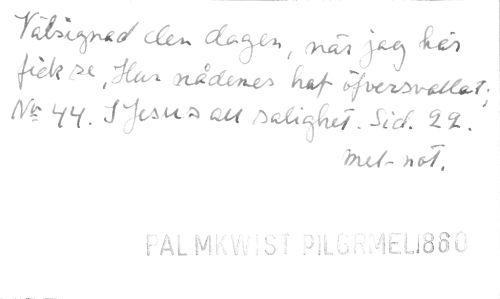 Välsignad den dagen, när jag här
fick se, Hur nådenes haf öfversvallat;
No 44. I Jesus all salighet. Sid. 22.
mel-not.
PALMKWIST PILGRMEL1860